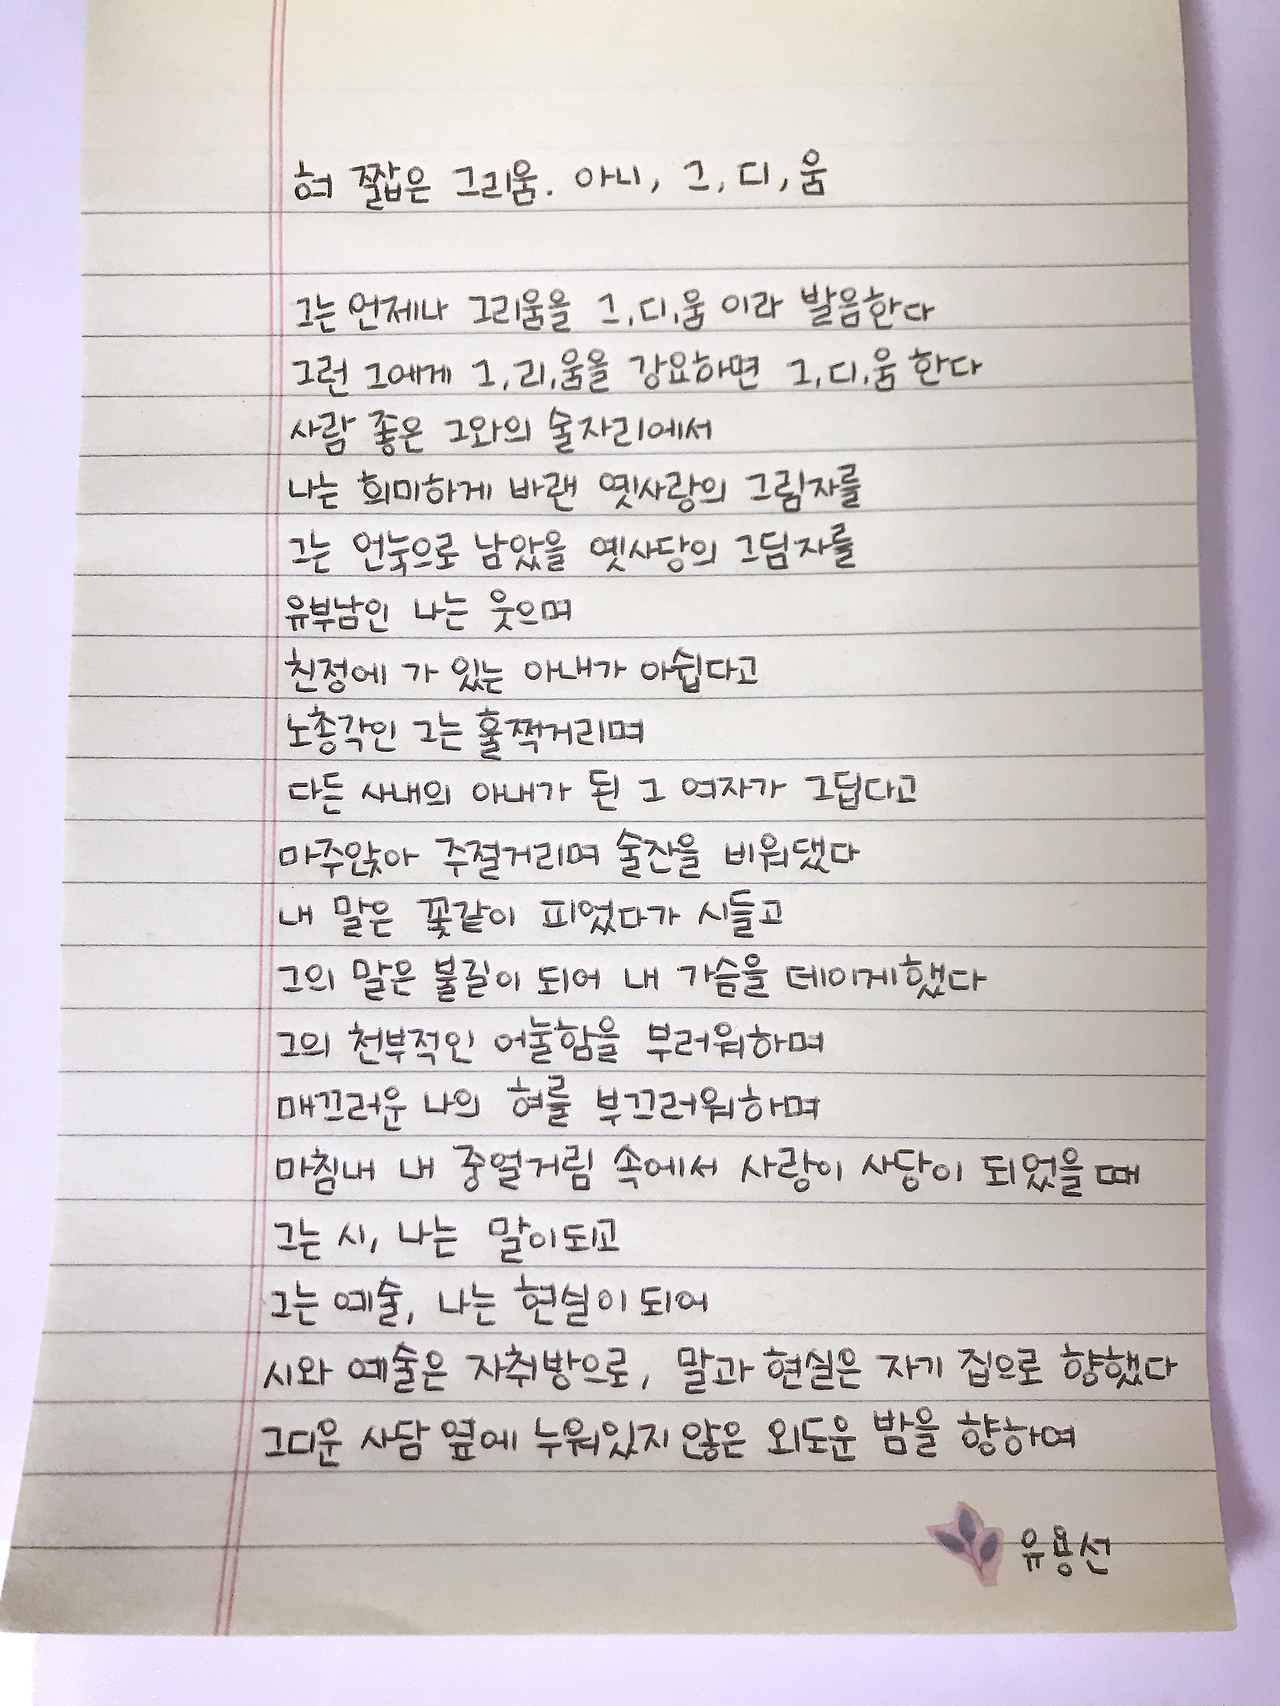 혀 짧은 그리움. 아니, 그, 디, 움
그는 언제나 그리움을 그,디,움 이라 발음한다
그런 그에게 그,리,움을 강요하면 그,디,움 한다
사람 좋은 그와의 술자리에서
나는 희미하게 바랜 옛사랑의 그림자를
그는 언눅으로 남았을 옛사당의 그딤자를
유부남인 나는 웃으며
친정에 가 있는 아내가 아쉽다고
노총각인 그는 훌쩍거리며
다든 사내의 아내가 된 그 여자가 그딥다고
마주앉아 주절거리며 술잔을 비워댔다
내 말은 꽃같이 피었다가 시들고
그의 말은 불길이 되어 내 가슴을 데이게했다
그의 천부적인 어눌함을 부러워하며
매끄러운 나의 혀를 부끄러워하며
마침내 내 중얼거림 속에서 사랑이 사당이 되었을 때
그는 시, 나는 말이되고
그는 예술, 나는 현실이 되어
시와 예술은 자취방으로, 말과 현실은 자기 집으로 향했다
그디운 사담 옆에 누워있지 않은 외도운 밤을 향하여
유용선